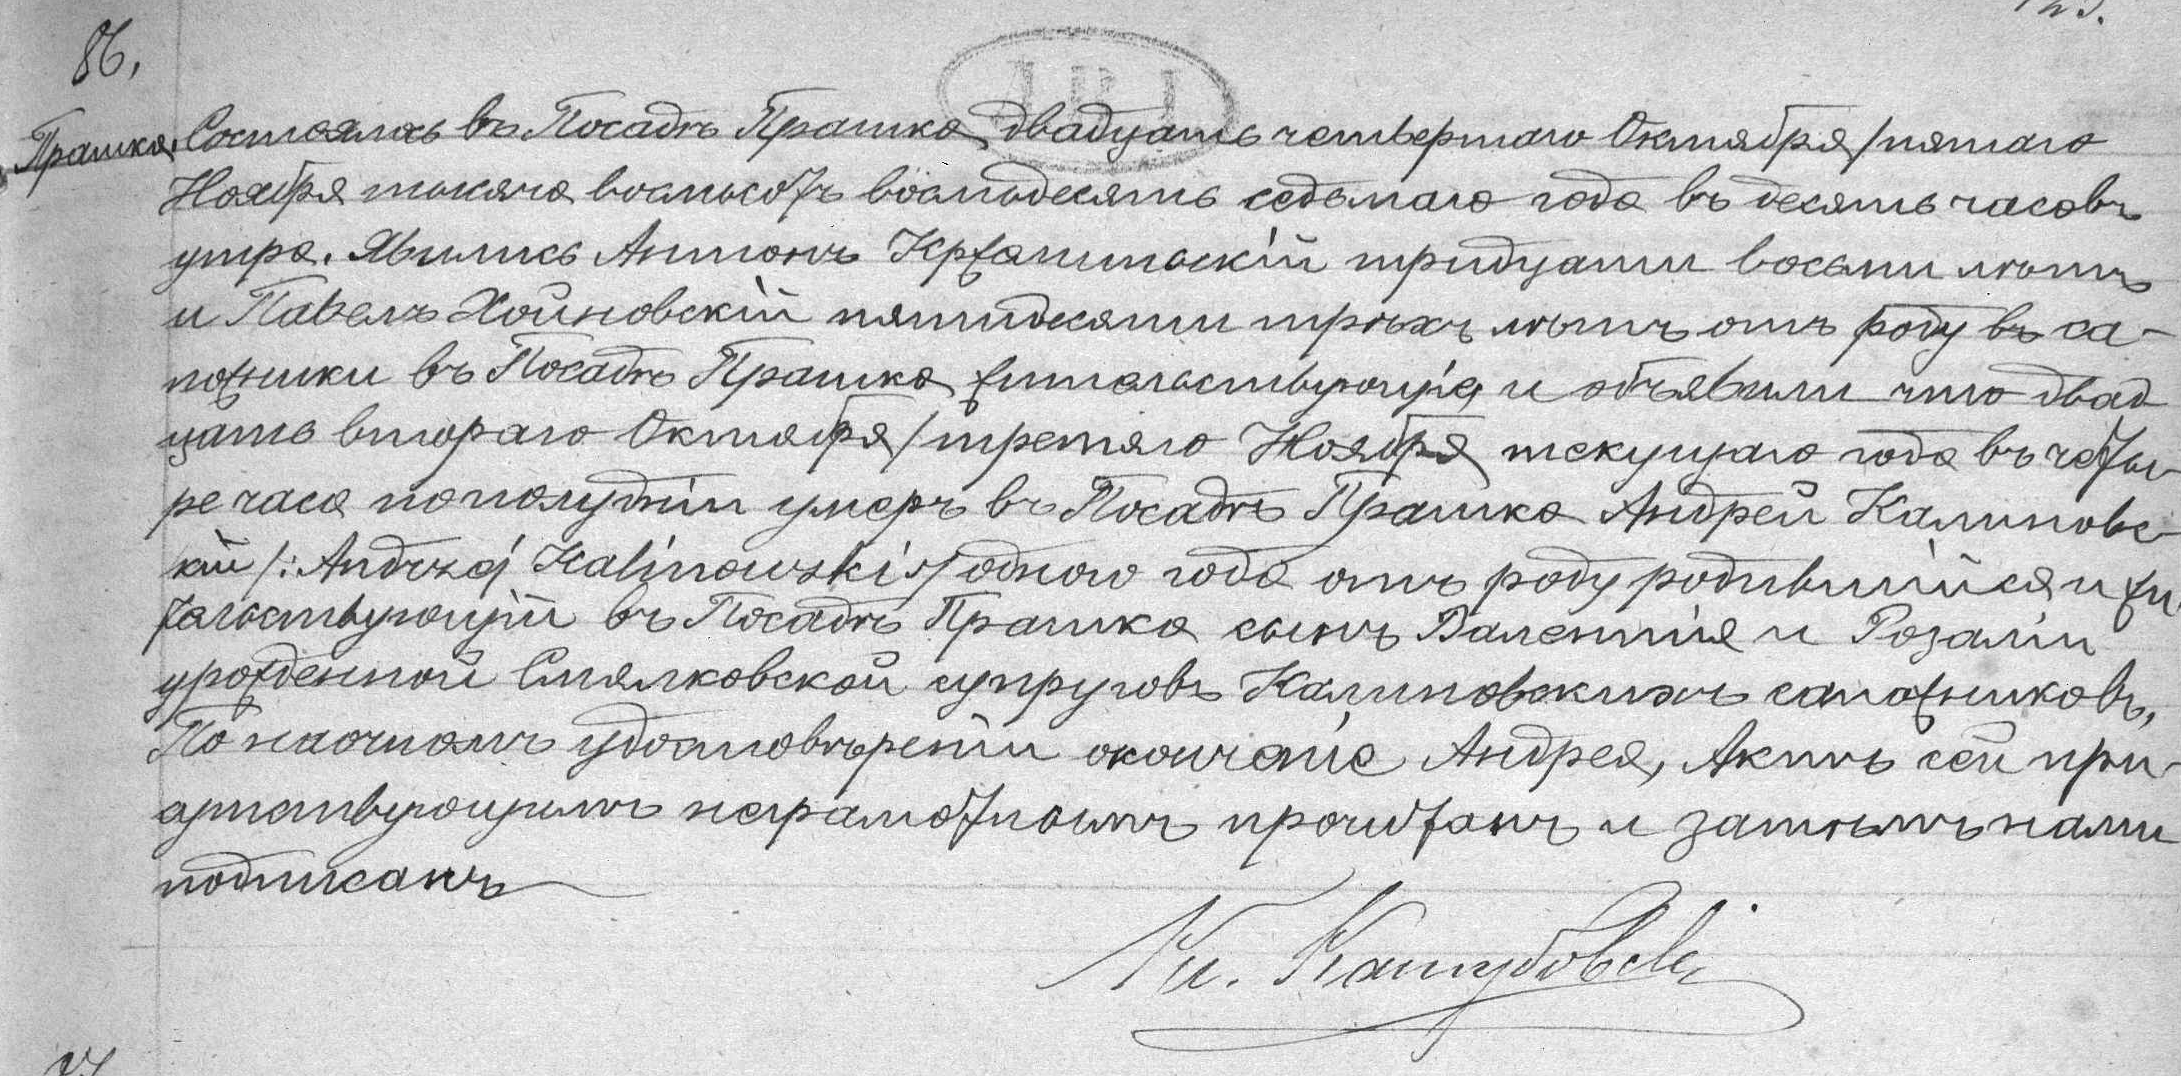 86.
Прашка. Состоялось въ Посадѣ Прашка двадцать четвертаго Октября/пятаго
Ноября тысяча восмьсотъ восмьдесять седьмаго года въ десять часовъ
утра. Явились Антонъ тридцати восьми лѣтъ
и Павелъ Хойновскій пятидесяти трѣхъ лѣтъ отъ роду въ са-
пожники въ Посадѣ Прашка жительствующіе и объявили что двад
цать втораго Октября/третяго Ноября текущаго года въ четы-
ре часа пополудніи умеръ въ Посадѣ Прашка Андрей Калиновс-
кій /:Andrzej Kalinowski:/ одного года отъ роду родившійся и жи-
тельствующій въ Посадѣ Прашка сынъ Валентія и Розаліи
урожденной Смялковской супруговъ Калиновскихъ сапожниковъ,
По наочномъ удостовѣреніи окончаніе Андрея, Актъ сей при-
сутствующимъ неграмотнымъ прочитанъ и затѣмъ нами
подписанъ